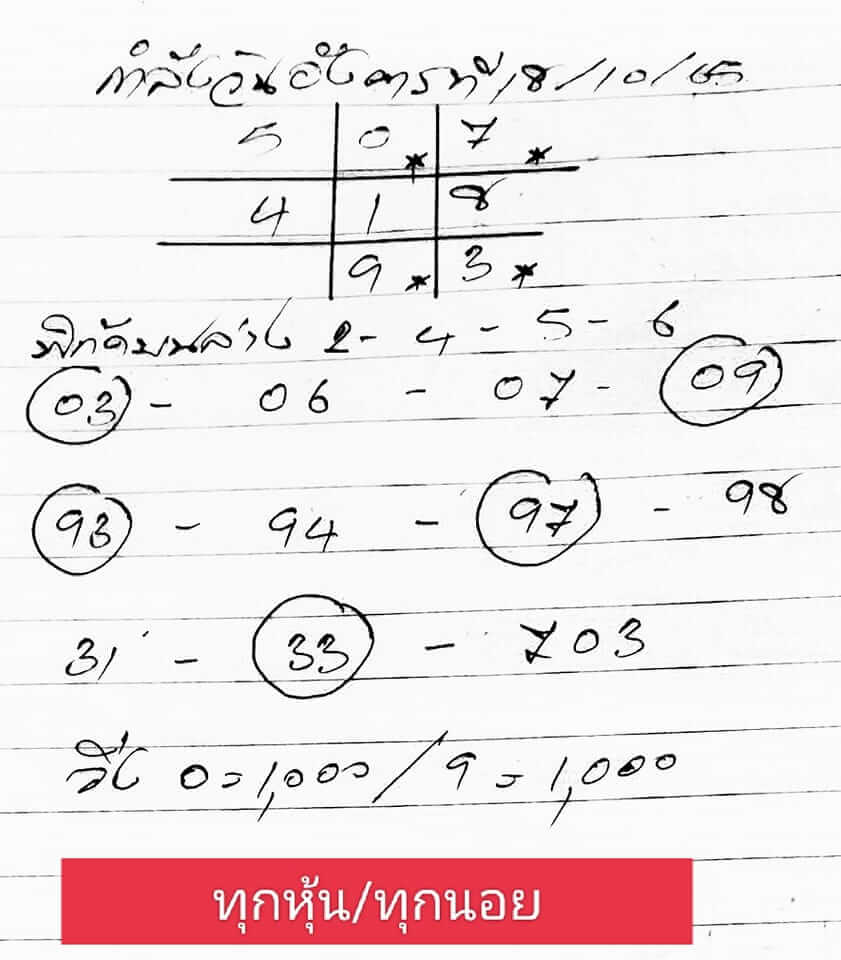 กำลังวันอังคารที่ 18/10/65
5 0* 7*
4 1 8
9* 3*
พิกัดบนล่าง 2 - 4 - 5 - 6
03 - 06 - 07 - 09
93 - 94 - 97 - 98
31 - 33 - 703
วิ่ง 0=1,000/9=1,000
ทุกหุ้น/ทุกนอย